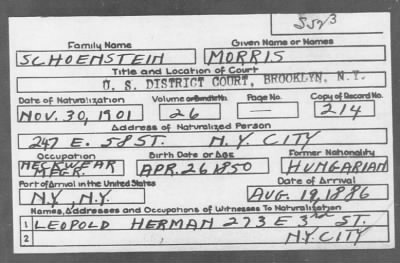 S552 3
Family Name Given Name or Names
SCHOENSTEIN MORRIS
Title and Location of Court
U. S. DISTRICT COURT, BROOKLYN, N.Y.
Date of Naturalization Volume or Bundle No. Page No. Copy of Record No.
NOV. 30, 1901 26 — 214
Address of Naturalized Person
247 E. 58 ST. N.Y. CITY
Occupation Birth Date or Age Former Nationality
NECKWEAR MFGR. APR. 26 1850 HUNGARIAN
Port of Arrival in the United States Date of Arrival
N.Y., N.Y. AUG. 19, 1886
Names, Addresses and Occupations of Witnesses To Naturalization
1 LEOPOLD HERMAN 273 E 3RD ST.
2 N.Y. CITY